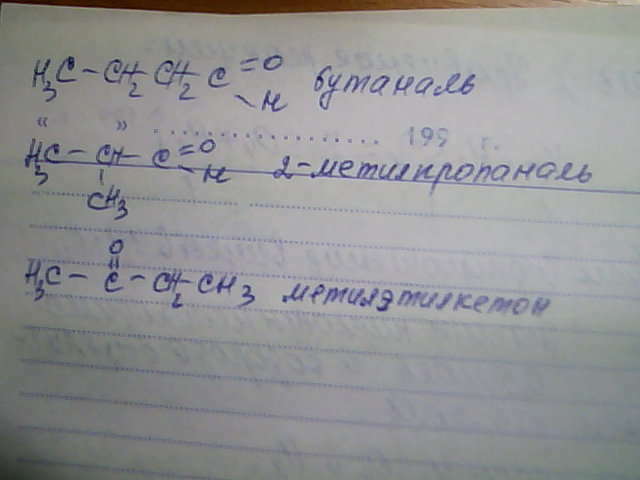 H₃C – CH₂ – CH₂ – C =O –H бутаналь
« » .................... 199 г.
H₃C – CH – C =O –H 2-метилпропаналь
CH₃
O
H₃C – C – CH₂ – CH₃ метилэтилкетон